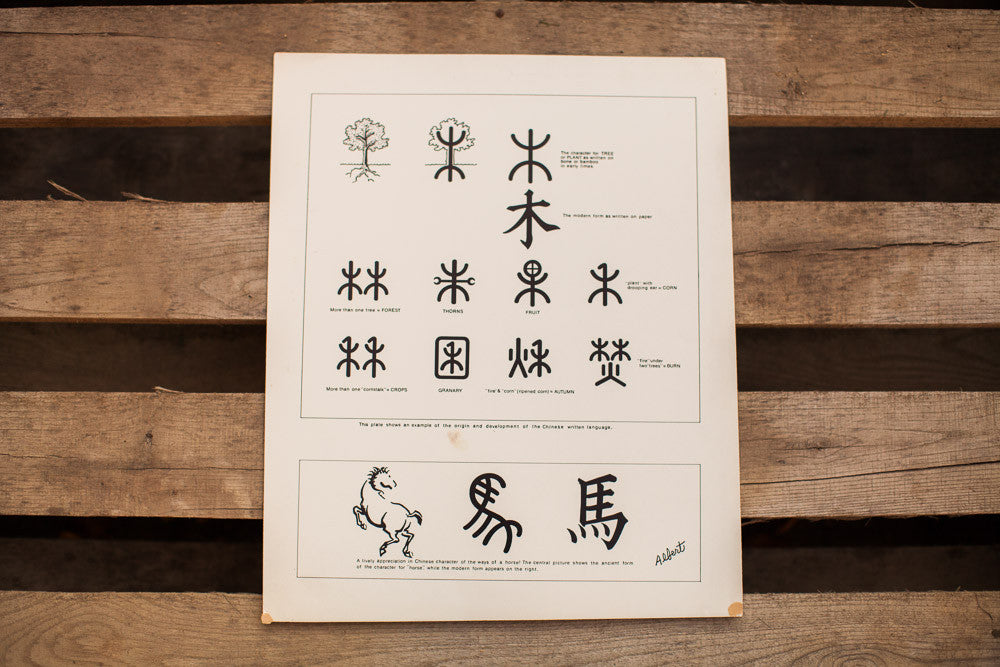 The character for TREE
or PLANT as written on
bone or bamboo
in early times
木
The modern form as written on paper
"plant" with
drooping ear = CORN
More than one tree = FOREST
THORNS
FRUIT
"fire" under
two "trees" = BURN
More than one "cornstalk" = CROPS
GRANARY
"fire" & "corn" (ripened corn) = AUTUMN
This plate shows an example of the origin and development of the Chinese written language.
馬
Albert
A lively appreciation in Chinese character of the ways of a horse! The central picture shows the ancient form
of the character for "horse," while the modern form appears on the right.